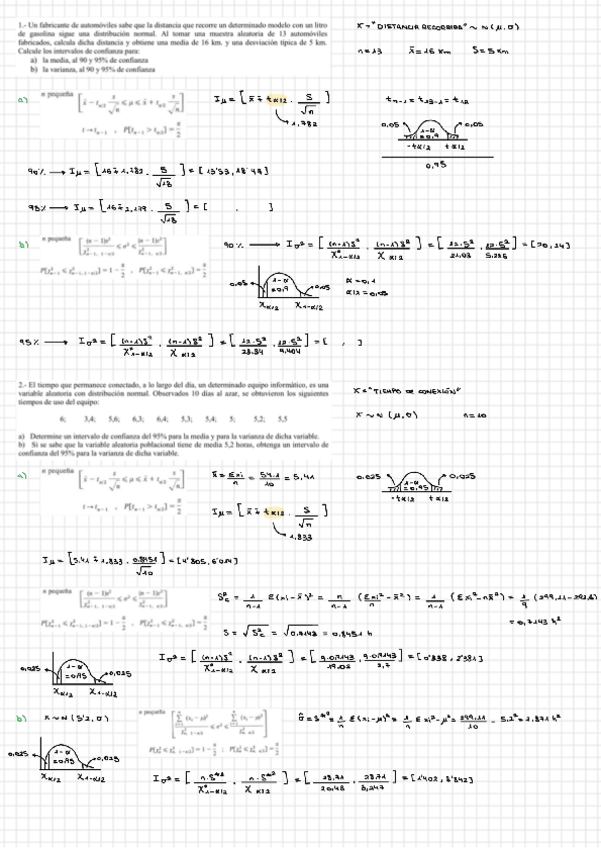 1.- Un fabricante de automóviles sabe que la distancia que recorre un determinado modelo con un litro
de gasolina sigue una distribución normal. Al tomar una muestra aleatoria de 13 automóviles
fabricados, calcula dicha distancia y obtiene una media de 16 km. y una desviación típica de 5 km.
Calcule los intervalos de confianza para:
a) la media, al 90 y 95% de confianza
b) la varianza, al 90 y 95% de confianza
X="DISTANCIA RECORRIDA" ~ N(μ,σ)
n=13 x̄=16 km S=5 km
a) n pequeña [x̄ - tα/2 s/√n ≤ μ ≤ x̄ + tα/2 s/√n]
t→tn-1, P[tn-1 > tα/2] = α/2
Iμ = [x̄ ∓ tα/2 · S/√n]
1,782
tn-1 = t13-1 = t12
0,05 1-α 0,05
-tα/2 tα/2
0,95
90% → Iμ = [16 ∓ 1,782 · 5/√13] = [13'53, 18'47]
95% → Iμ = [16 ∓ 2,179 · 5/√13] = [ , ]
b) n pequeña
90% → Iσ² = [(n-1)S²/X²1-α/2 , (n-1)S²/Xα/2] = [12·5²/21,03 , 12·5²/5,226] =
0,05 1-α =0,9 0,05
Xα/2 X1-α/2
α=0,1
α/2=0,05
95% → Iσ² = [(n-1)S²/X²1-α/2 , (n-1)S²/Xα/2] = [12·5²/23.34 , 12·5²/4,404] = [ , ]
2.- El tiempo que permanece conectado, a lo largo del día, un determinado equipo informático, es una
variable aleatoria con distribución normal. Observados 10 días al azar, se obtuvieron los siguientes
tiempos de uso del equipo:
6; 3,4; 5,6; 6,3; 6,4; 5,3; 5,4; 5; 5,2; 5,5
a) Determine un intervalo de confianza del 95% para la media y para la varianza de dicha variable.
b) Si se sabe que la variable aleatoria poblacional tiene de media 5,2 horas, obtenga un intervalo de
confianza del 95% para la varianza de dicha variable.
X="TIEMPO DE CONEXIÓN"
X ~ N(μ,σ) n=10
a) n pequeña [x̄ - tα/2 s/√n ≤ μ ≤ x̄ + tα/2 s/√n]
t→tn-1, P[tn-1 > tα/2] = α/2
x̄ = Σxi/n = 54.1/10 = 5,41
0,025 1-α =0,95 0,025
-tα/2 tα/2
Iμ = [x̄ ∓ tα/2 · S/√n]
1,833
Iμ = [5.41 ∓ 1,833 · 0.8451/√10] =
n pequeña
S²c = 1/n-1 Σ(xi-x̄)² = n/n-1 (Σxi²/n - x̄²) = 1/n-1 (Σxi²-nx̄²) =
= 0,7143 h²
S = √S²c = √0,7143 = 0,8451 h
0,025 1-α =0,95 0,025
Xα/2 X1-α/2
Iσ² = [(n-1)S²/X²1-α/2 , (n-1)S²/Xα/2] = [9·0,7143/19.02 , 9·0,7143/2,7] = [0'338, 2'381]
b) X~N(5'2,σ) n pequeña
0,025 1-α =0.95 0,025
Xα/2 X1-α/2
Iσ² = [n·S*²/X²1-α/2 , n·S*²/Xα/2] = [28.71/20,48 , 28.71/3,247] =